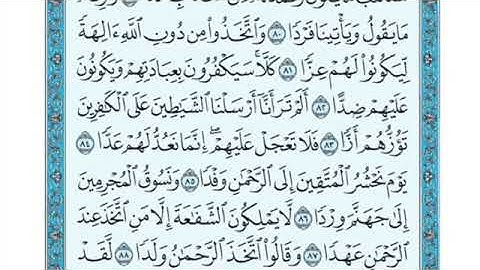 مَا يَقُولُ وَيَأْتِينَا فَرْدًا ٨٠ وَاتَّخَذُوا مِن دُونِ اللَّهِ ءَالِهَةً
لِّيَكُونُوا لَهُمْ عِزًّا ٨١ كَلَّا سَيَكْفُرُونَ بِعِبَادَتِهِمْ وَيَكُونُونَ
عَلَيْهِمْ ضِدًّا ٨٢ أَلَمْ تَرَ أَنَّا أَرْسَلْنَا الشَّيَاطِينَ عَلَى الْكَافِرِينَ
تَؤُزُّهُمْ أَزًّا ٨٣ فَلَا تَعْجَلْ عَلَيْهِمْ إِنَّمَا نَعُدُّ لَهُمْ عَدًّا ٨٤
يَوْمَ نَحْشُرُ الْمُتَّقِينَ إِلَى الرَّحْمَٰنِ وَفْدًا ٨٥ وَنَسُوقُ الْمُجْرِمِينَ
إِلَىٰ جَهَنَّمَ وِرْدًا ٨٦ لَّا يَمْلِكُونَ الشَّفَاعَةَ إِلَّا مَنِ اتَّخَذَ عِندَ
الرَّحْمَٰنِ عَهْدًا ٨٧ وَقَالُوا اتَّخَذَ الرَّحْمَٰنُ وَلَدًا ٨٨ لَّقَدْ